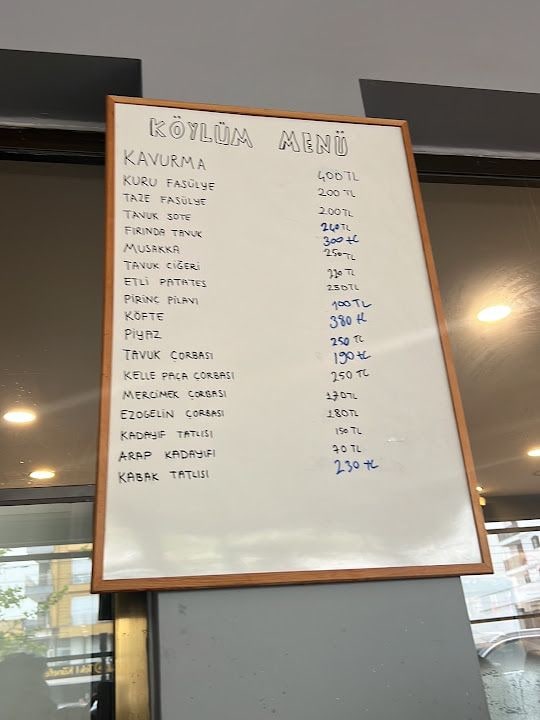 KÖYLÜM MENÜ
KAVURMA 400TL
KURU FASÜLYE 200TL
TAZE FASÜLYE 200TL
TAVUK SOTE 240TL
FIRINDA TAVUK 300tL
MUSAKKA 250TL
TAVUK CİĞERİ 220TL
ETLİ PATATES 250TL
PİRİNÇ PİLAVI 100TL
KÖFTE 380tL
PİYAZ 250TL
TAVUK ÇORBASI 190tL
KELLE PAÇA ÇORBASI 250TL
MERCİMEK ÇORBASI 170TL
EZOGELİN ÇORBASI 180TL
KADAYIF TATLISI 150TL
ARAP KADAYIFI 70TL
KABAK TATLISI 230tL